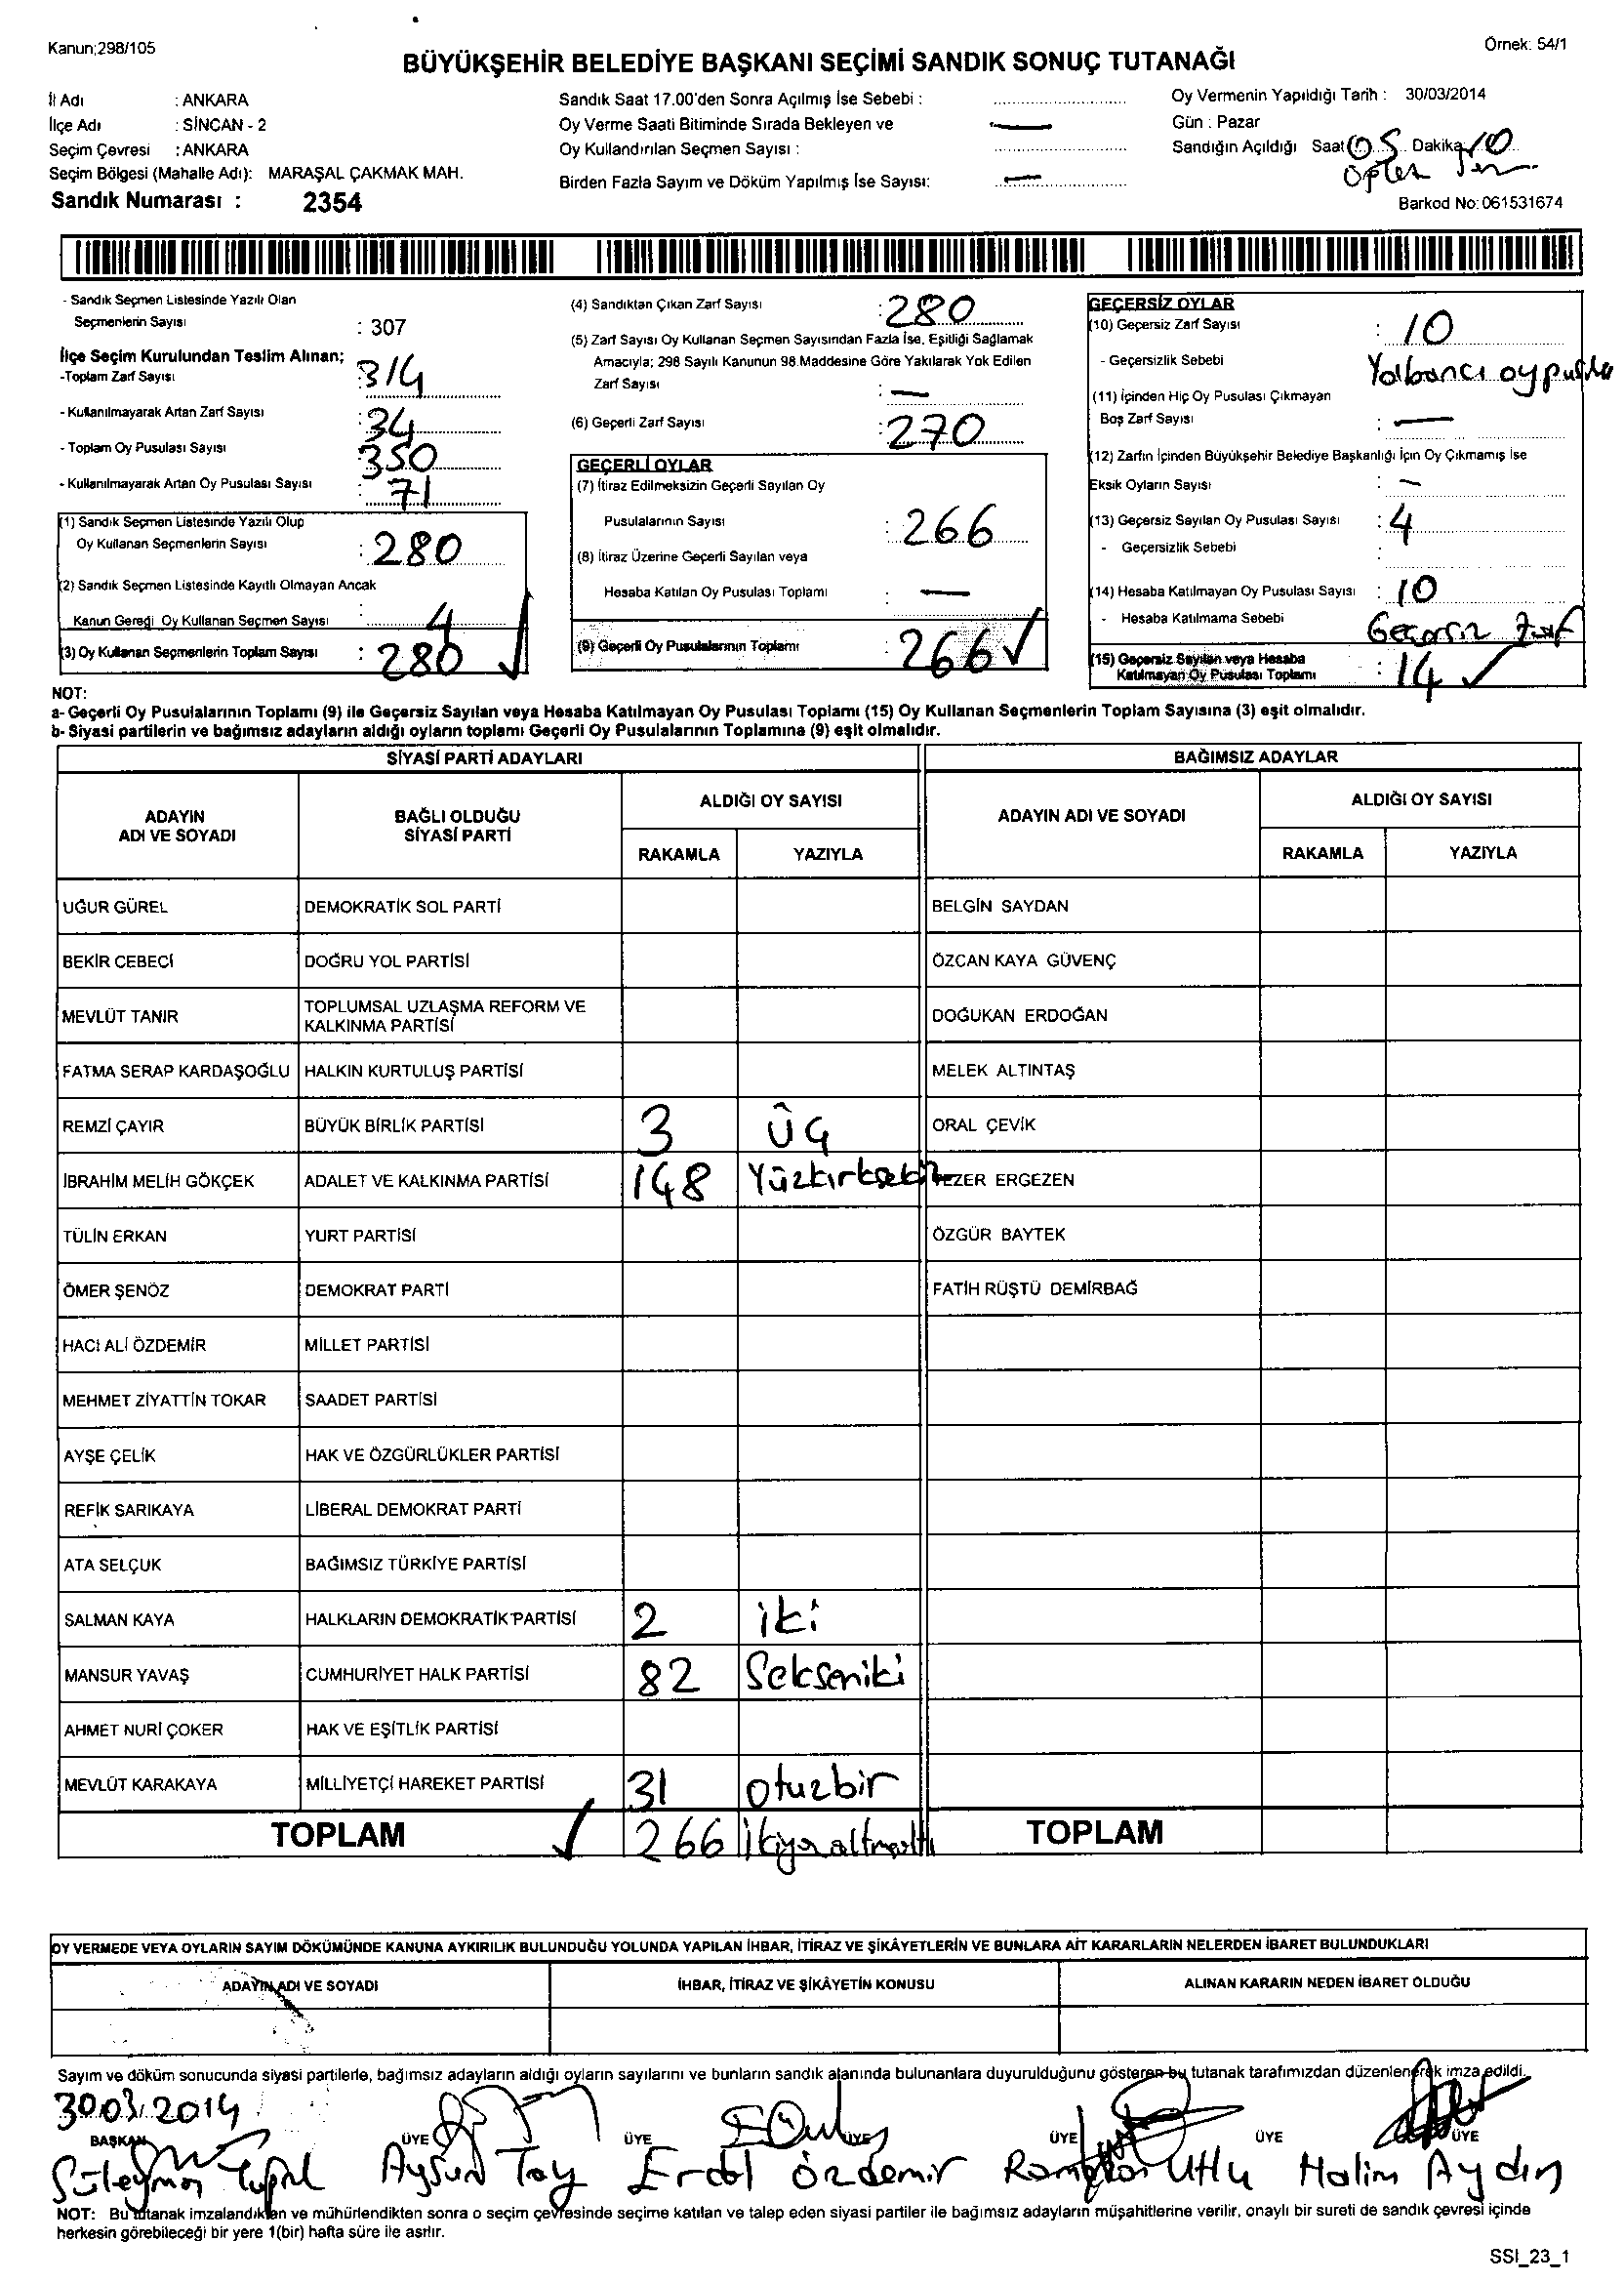 Kanun;298/105
Örnek: 54/1
BÜYÜKŞEHİR BELEDİYE BAŞKANI SEÇİMİ SANDIK SONUÇ TUTANAĞI
İl Adı : ANKARA
İlçe Adı : SİNCAN - 2
Seçim Çevresi : ANKARA
Seçim Bölgesi (Mahalle Adı): MARAŞAL ÇAKMAK MAH.
Sandık Numarası : 2354
Sandık Saat 17.00'den Sonra Açılmış İse Sebebi :
Oy Verme Saati Bitiminde Sırada Bekleyen ve
Oy Kullandırılan Seçmen Sayısı :
Birden Fazla Sayım ve Döküm Yapılmış İse Sayısı:
Oy Vermenin Yapıldığı Tarih : 30/03/2014
Gün : Pazar
Sandığın Açıldığı Saat 05 Dakika 10
Barkod No:061531674
- Sandık Seçmen Listesinde Yazılı Olan
Seçmenlerin Sayısı : 307
İlçe Seçim Kurulundan Teslim Alınan;
-Toplam Zarf Sayısı : 314
- Kullanılmayarak Artan Zarf Sayısı : 34
- Toplam Oy Pusulası Sayısı : 350
- Kullanılmayarak Artan Oy Pusulası Sayısı : 71
(1) Sandık Seçmen Listesinde Yazılı Olup
Oy Kullanan Seçmenlerin Sayısı : 280
(2) Sandık Seçmen Listesinde Kayıtlı Olmayan Ancak
Kanun Gereği Oy Kullanan Seçmen Sayısı : 4
(3) Oy Kullanan Seçmenlerin Toplam Sayısı : 280
(4) Sandıktan Çıkan Zarf Sayısı : 280
(5) Zarf Sayısı Oy Kullanan Seçmen Sayısından Fazla İse, Eşitliği Sağlamak
Amacıyla; 298 Sayılı Kanunun 98.Maddesine Göre Yakılarak Yok Edilen
Zarf Sayısı : —
(6) Geçerli Zarf Sayısı : 270
GEÇERLİ OYLAR
(7) İtiraz Edilmeksizin Geçerli Sayılan Oy
Pusulalarının Sayısı : 266
(8) İtiraz Üzerine Geçerli Sayılan veya
Hesaba Katılan Oy Pusulası Toplamı : —
(9) Geçerli Oy Pusulalarının Toplamı : 266
GEÇERSİZ OYLAR
(10) Geçersiz Zarf Sayısı : 10
- Geçersizlik Sebebi Yabancı oy pusula
(11) İçinden Hiç Oy Pusulası Çıkmayan
Boş Zarf Sayısı : —
(12) Zarfın İçinden Büyükşehir Belediye Başkanlığı İçin Oy Çıkmamış İse
Eksik Oyların Sayısı : —
(13) Geçersiz Sayılan Oy Pusulası Sayısı : 4
- Geçersizlik Sebebi :
(14) Hesaba Katılmayan Oy Pusulası Sayısı : 10
- Hesaba Katılmama Sebebi Geçersiz Zarf
(15) Geçersiz Sayılan veya Hesaba
Katılmayan Oy Pusulası Toplamı : 14
NOT:
a- Geçerli Oy Pusulalarının Toplamı (9) ile Geçersiz Sayılan veya Hesaba Katılmayan Oy Pusulası Toplamı (15) Oy Kullanan Seçmenlerin Toplam Sayısına (3) eşit olmalıdır.
b- Siyasi partilerin ve bağımsız adayların aldığı oyların toplamı Geçerli Oy Pusulalarının Toplamına (9) eşit olmalıdır.
SİYASİ PARTİ ADAYLARI BAĞIMSIZ ADAYLAR
ADAYIN ADI VE SOYADI BAĞLI OLDUĞU SİYASİ PARTİ ALDIĞI OY SAYISI ADAYIN ADI VE SOYADI ALDIĞI OY SAYISI
RAKAMLA YAZIYLA RAKAMLA YAZIYLA
UĞUR GÜREL DEMOKRATİK SOL PARTİ BELGİN SAYDAN
BEKİR CEBECİ DOĞRU YOL PARTİSİ ÖZCAN KAYA GÜVENÇ
MEVLÜT TANIR TOPLUMSAL UZLAŞMA REFORM VE KALKINMA PARTİSİ DOĞUKAN ERDOĞAN
FATMA SERAP KARDAŞOĞLU HALKIN KURTULUŞ PARTİSİ MELEK ALTINTAŞ
REMZİ ÇAYIR BÜYÜK BİRLİK PARTİSİ 3 üç ORAL ÇEVİK
İBRAHİM MELİH GÖKÇEK ADALET VE KALKINMA PARTİSİ 148 Yüzkırksekiz TEZER ERGEZEN
TÜLİN ERKAN YURT PARTİSİ ÖZGÜR BAYTEK
ÖMER ŞENÖZ DEMOKRAT PARTİ FATİH RÜŞTÜ DEMİRBAĞ
HACI ALİ ÖZDEMİR MİLLET PARTİSİ
MEHMET ZİYATTİN TOKAR SAADET PARTİSİ
AYŞE ÇELİK HAK VE ÖZGÜRLÜKLER PARTİSİ
REFİK SARIKAYA LİBERAL DEMOKRAT PARTİ
ATA SELÇUK BAĞIMSIZ TÜRKİYE PARTİSİ
SALMAN KAYA HALKLARIN DEMOKRATİK PARTİSİ 2 iki
MANSUR YAVAŞ CUMHURİYET HALK PARTİSİ 82 Sekseniki
AHMET NURİ ÇOKER HAK VE EŞİTLİK PARTİSİ
MEVLÜT KARAKAYA MİLLİYETÇİ HAREKET PARTİSİ 31 otuzbir
TOPLAM 266 TOPLAM
OY VERMEDE VEYA OYLARIN SAYIM DÖKÜMÜNDE KANUNA AYKIRILIK BULUNDUĞU YOLUNDA YAPILAN İHBAR, İTİRAZ VE ŞİKÂYETLERİN VE BUNLARA AİT KARARLARIN NELERDEN İBARET BULUNDUKLARI
ADAYIN ADI VE SOYADI İHBAR, İTİRAZ VE ŞİKÂYETİN KONUSU ALINAN KARARIN NEDEN İBARET OLDUĞU
Sayım ve döküm sonucunda siyasi partilerle, bağımsız adayların aldığı oyların sayılarını ve bunların sandık alanında bulunanlara duyurulduğunu gösteren bu tutanak tarafımızdan düzenlenerek imza edildi.
30.03.2014
BAŞKAN ÜYE ÜYE ÜYE ÜYE ÜYE ÜYE
Süleyman Aysun Tay Erdol Özdemir Ramazan Utlu Halim Aydın
NOT: Bu tutanak imzalandıktan ve mühürlendikten sonra o seçim çevresinde seçime katılan ve talep eden siyasi partiler ile bağımsız adayların müşahitlerine verilir, onaylı bir sureti de sandık çevresi içinde
herkesin görebileceği bir yere 1(bir) hafta süre ile asılır.
SSI_23_1